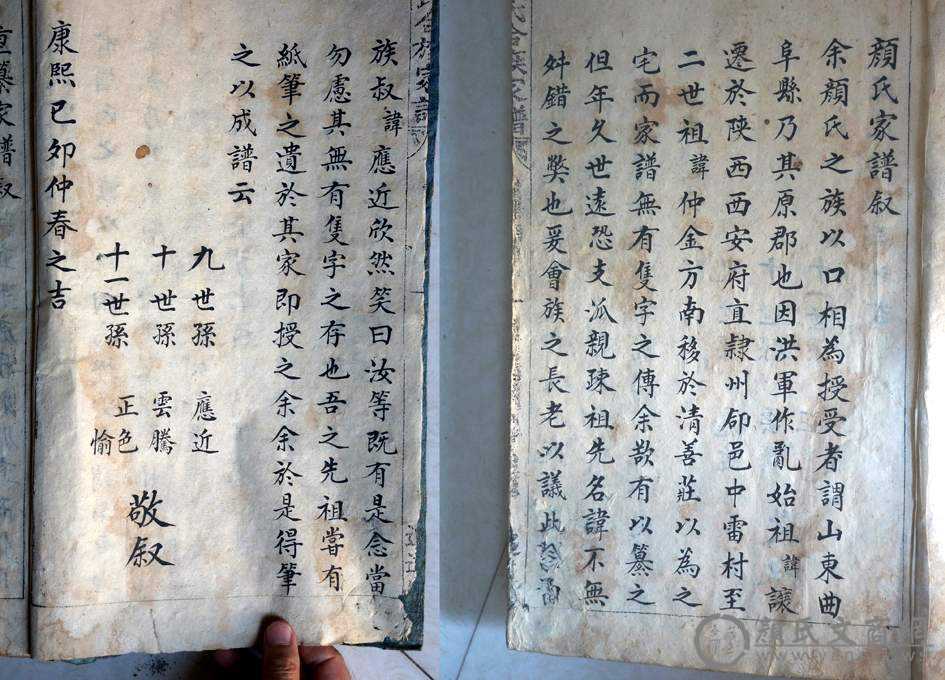 顏氏家譜叙
余顏氏之族以口相為授受者謂山東曲
阜縣乃其原郡也因洪軍作亂始祖諱讓
遷於陝西西安府直隸州郃邑中雷村至
二世祖諱仲金方南移於清善莊以為之
宅而家譜無有隻字之傳余欲有以纂之
但年久世遠恐支派親疎祖先名諱不無
舛錯之獘也爰會族之長老以議此
族叔諱應近欣然笑曰汝等既有是念當
勿慮其無有隻字之存也吾之先祖嘗有
紙筆之遺於其家即授之余余於是得筆
之以成譜云
九世孫 應近
十世孫 雲騰
十一世孫 正色 愉
敬叙
康熙己卯仲春之吉
重纂家譜叙
氏合族家譜
顏氏文商網